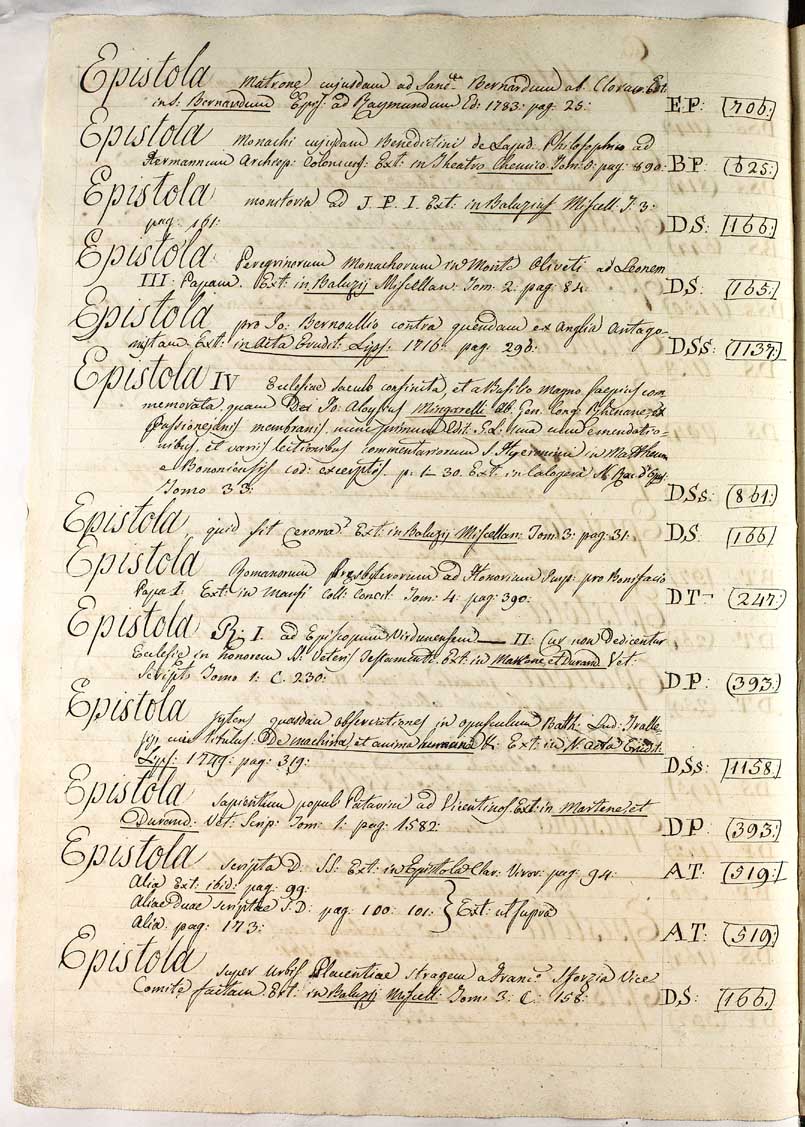 Epistola Matrone cujusdam ad Sanc. Bernardum ab. Claravi Ext
ins: Bernardum Epis: ad Raymundum Ed: 1783: pag: 25: EP: 706:
Epistola Monachi cujusdam Benedictini de Lapid: Philosophico ad
Hermannum Archiep: Coloniens: Ext: in Theatro Chemico Tom: pag: 890: BP: 625:
Epistola monitoria ad J. P. I. Ext: in Baluzius Miscell: T: 3:
pag: 161: DS: 166:
Epistola Peregrinorum Monachorum in Monte Oliveti ad Leonem
III: Papam. Ext: in Baluzij Miscellan: Tom: 2: pag: 84 DS: 165:
Epistola pro Jo: Bernoullio contra quendam ex Anglia Antago-
nistam. Ext: in Acta Erudit: Lips: 1716: pag: 296: DSs: 1137:
Epistola IV Eclesiae saeculo confinita, et a Basilio magno saepius com
memorata quam Dei Jo: Aloysius Mingarelli Ab: Gen: Cong: Rhenane, ex
Passionejanis membranis, nunc primum Edit: Ed: una cum emendatio-
nibus, et variis lectionibus commentariorum S. Hyeronimi in Mattheum
e Bononiensis cod: excerptis. p: 1-30. Ext: in Calogerà N. Rac: d'Opus:
Tomo 33: DSs: 861:
Epistola, quid sit ceroma? Ext: in Baluzij Miscellan: Tom: 3: pag: 31: DS: 166:
Epistola Romanorum Presbyterorum ad Honorium Imp: pro Bonifacio
Papa I: Ext: in Mansi Coll: Concil: Tom: 4: pag: 390: DT 247:
Epistola R. I. ad Episcopum Virdunensem — II: Cur non Dedicentur
Eclesie in honorem SS: Veteris Testamenti. Ext: in Martene, et Durand Vet:
Script: Tomo 1: C. 230: DP: 393:
Epistola sistens quasdam observationes in opusculum Balth: Lud: Tralle-
sij cui titulus: De machina, et anima humana &: Ext: in N: acta Erudit:
Lips: 1749: pag: 319: DSs: 1158:
Epistola sapientum populi Patavini ad Vicentinos Ext: in Martene, et
Durand: Vet: Scrip: Tom: 1: pag: 1582: DP: 393:
Epistola scripta D: SS: Ext: in Epistola Clar: Viror: pag: 94: AT: 519:
Alia Ext: ibid: pag: 99:
Aliae duae scriptae S.D: pag: 100: 101: Ext: ut supra
Alia: pag: 173: AT: 519:
Epistola super Urbis Placentiae stragem a Franc. Sforzia Vice
Comite factam. Ext: in Baluzij Miscell: Tom: 3: C: 158: DS: 166: